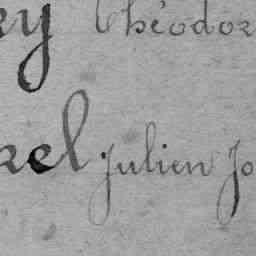 ey Théodor
rel Julien Jo